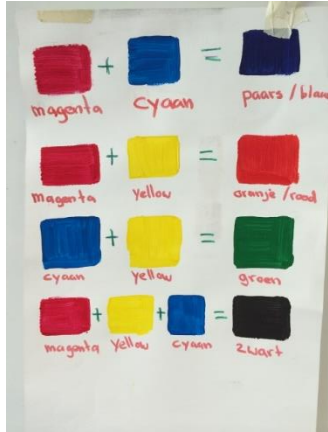 + =
magenta cyaan paars/blauw
+ =
magenta yellow oranje/rood
+ =
cyaan yellow groen
+ + =
magenta yellow cyaan zwart